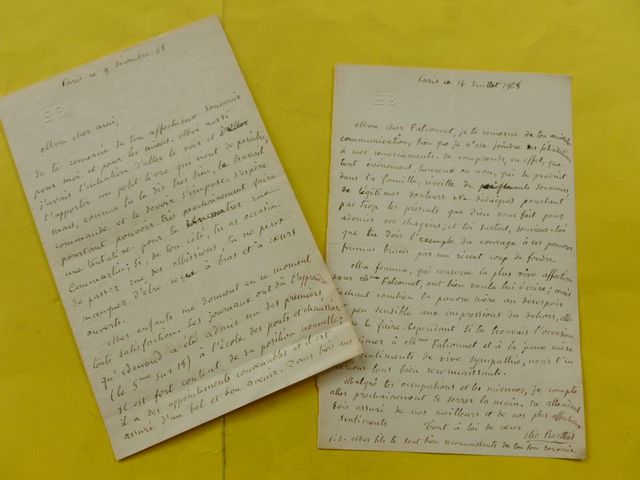 Paris ce 9 décembre 68
EB
Mon cher ami,
Je te remercie de ton affectueux souvenir
pour moi et pour les miens. Moi aussi
j'avais l'intention d'aller te voir et d'aller
t'apporter un petit livre qui vient de paraître,
mais, comme tu le dis très bien, le travail
commande et le devoir s'impose. J'espère
pourtant pouvoir très prochainement faire
une tentative pour te rencontrer rue
Caumartin; si, de ton côté, tu as occasion
de passer rue des Missions, tu ne peux
manquer d'être reçu à bras et à cœurs
ouverts.
Mes enfants me donnent en ce moment
toute satisfaction. Les journaux ont dû t'apprendre
qu'Edouard a été admis un des premiers,
(le 5me sur 18) à l'école des ponts et chaussées,
il est fort content de sa position nouvelle;
il a des appointements convenables et il est
assuré d'un bel et bon avenir. Dans trois ans
Paris ce 14 Juillet 1868
EB
Mon cher Falconnet, je te remercie de ton
communication, bien que je n'ose joindre des félicitations
à mes remerciements. Je comprends, en effet, que
tout événement, heureux ou non, qui se produit
dans ta famille, réveille de poignants souvenirs,
de légitimes douleurs. Ne dédaignes pourtant
pas trop les présents que Dieu vous fait pour
adoucir vos chagrins; et toi surtout, souviens-toi
que tu dois l'exemple du courage à ces pauvres
femmes brisées par un récent coup de foudre.
Ma femme, qui conserve la plus vive affection
pour Mme Falconnet, eut bien voulu lui écrire; mais
craint rendre la pauvre mère au désespoir
peu sensible aux impressions du dehors, elle
le faire. Cependant si tu trouvais l'occasion
à Mme Falconnet et à la jeune mère
sentiments de vive sympathie, nous t'en
serions tous bien reconnaissants.
Malgré tes occupations et les miennes, je compte
aller prochainement te serrer la main. En attendant
sois assuré de nos meilleurs et de nos plus affectueux
sentiments
tout à toi de cœur
P.S. Mes fils te sont bien reconnaissants de ton bon souvenir